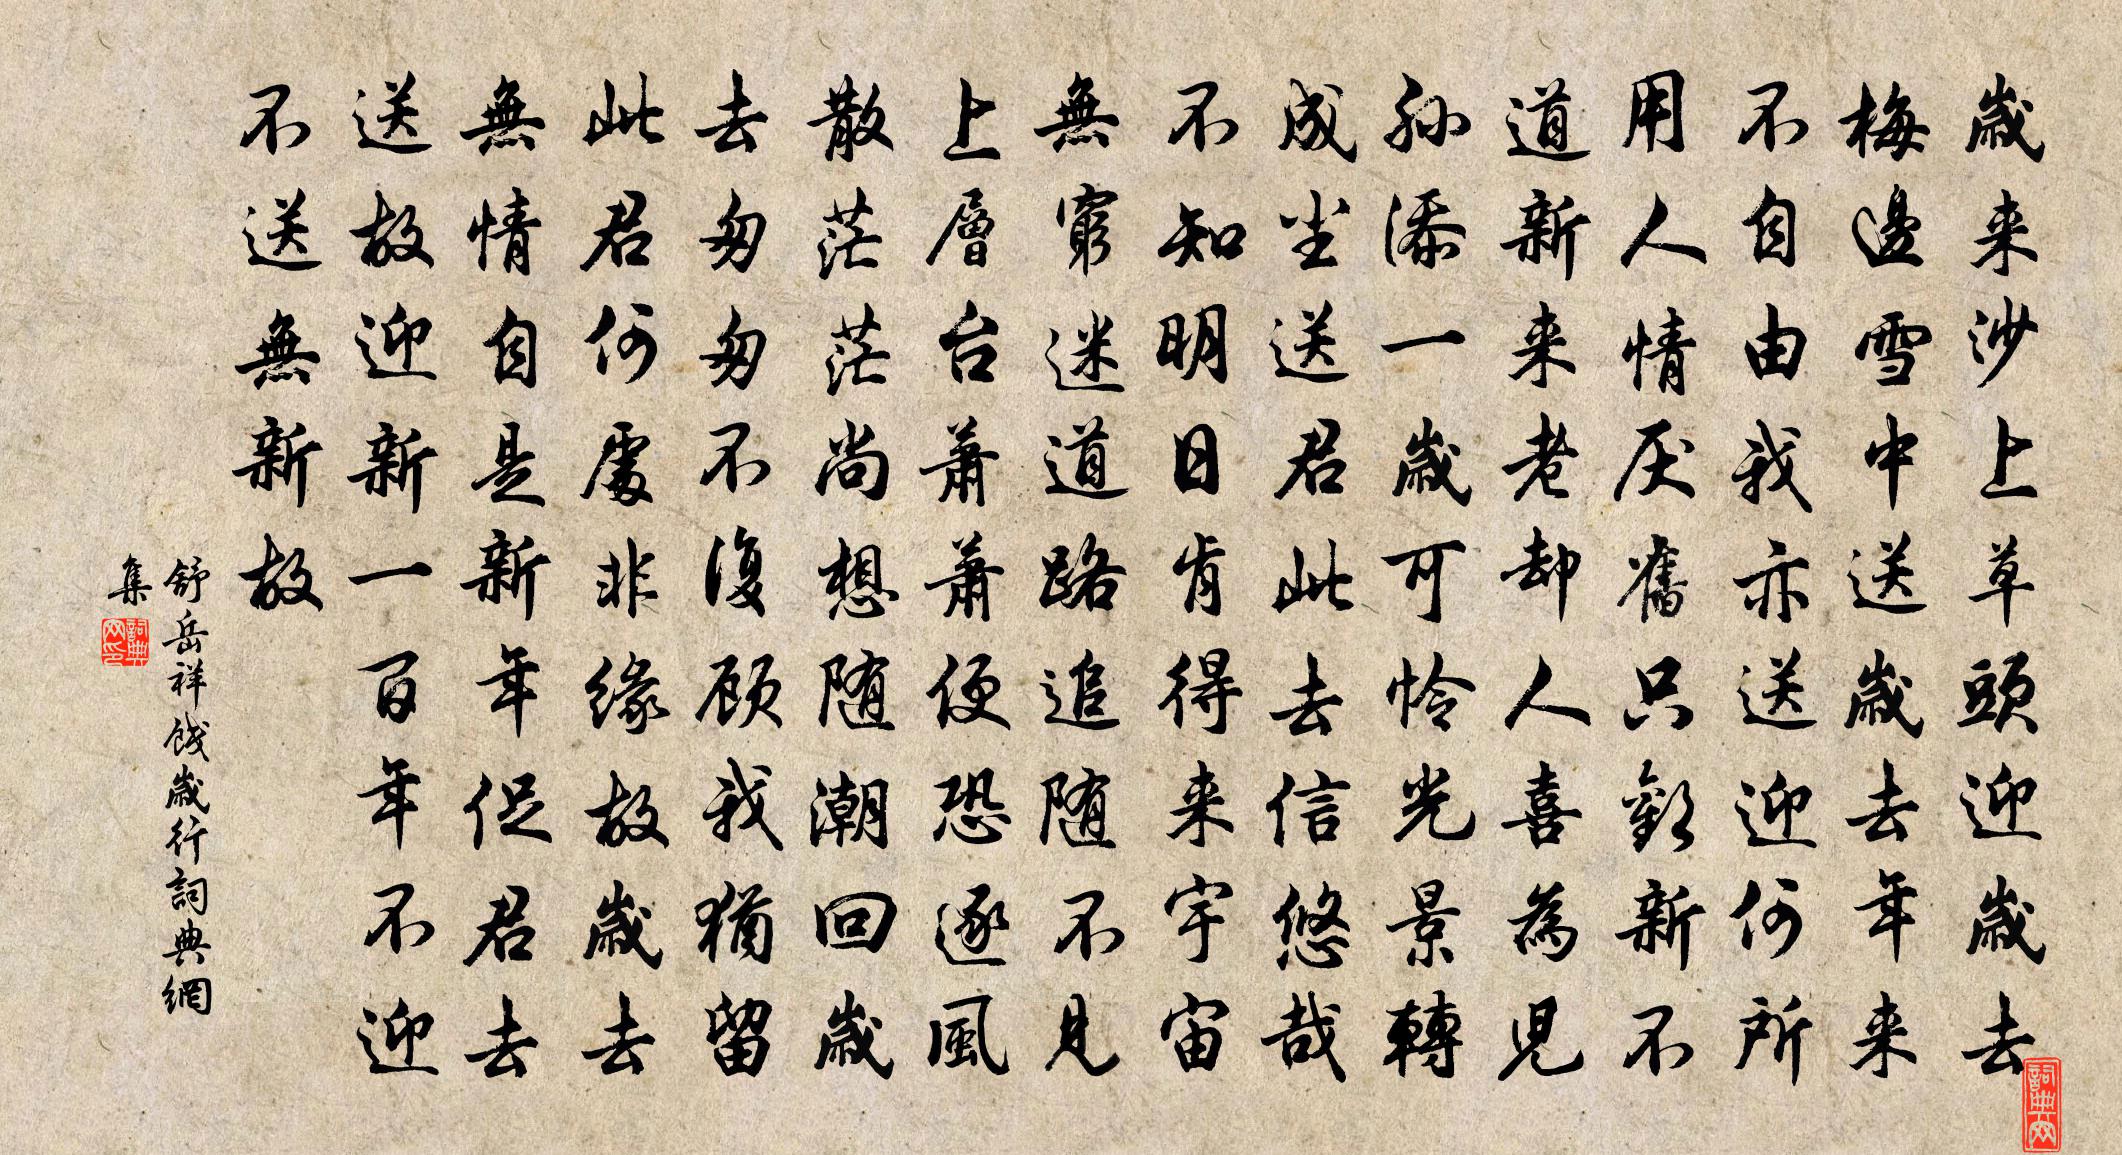 歲来沙上草頭迎歲去
梅邊雪中送歲去年来
不自由我亦送迎何所
用人情厌舊只歡新不
道新来老却人喜為児
孙添一歲可怜光景轉
成尘送君此去信悠哉
不知明日肯得来宇宙
無窮迷道路追随不見
上層台萧萧便恐逐風
散茫茫尚想随潮回歲
去匆匆不復顾我猶留
此君何處非缘故歲去
無情自是新年促君去
送故迎新一百年不迎
不送無新故
舒岳祥饯歲行詞典網
集
詞典网印
詞典网